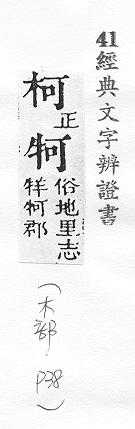 41經典文字辨證書
柯正牁俗地里志
牂牁郡
(木部 p38)